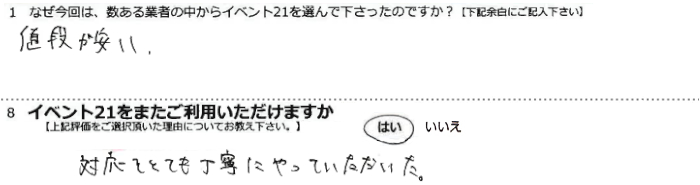 1 なぜ今回は、数ある業者の中からイベント21を選んで下さったのですか？【下記余白にご記入下さい】
値段が安い、
8 イベント21をまたご利用いただけますか
【上記評価をご選択頂いた理由についてお教え下さい。】 はい いいえ
対応をとても丁寧にやっていただいた。